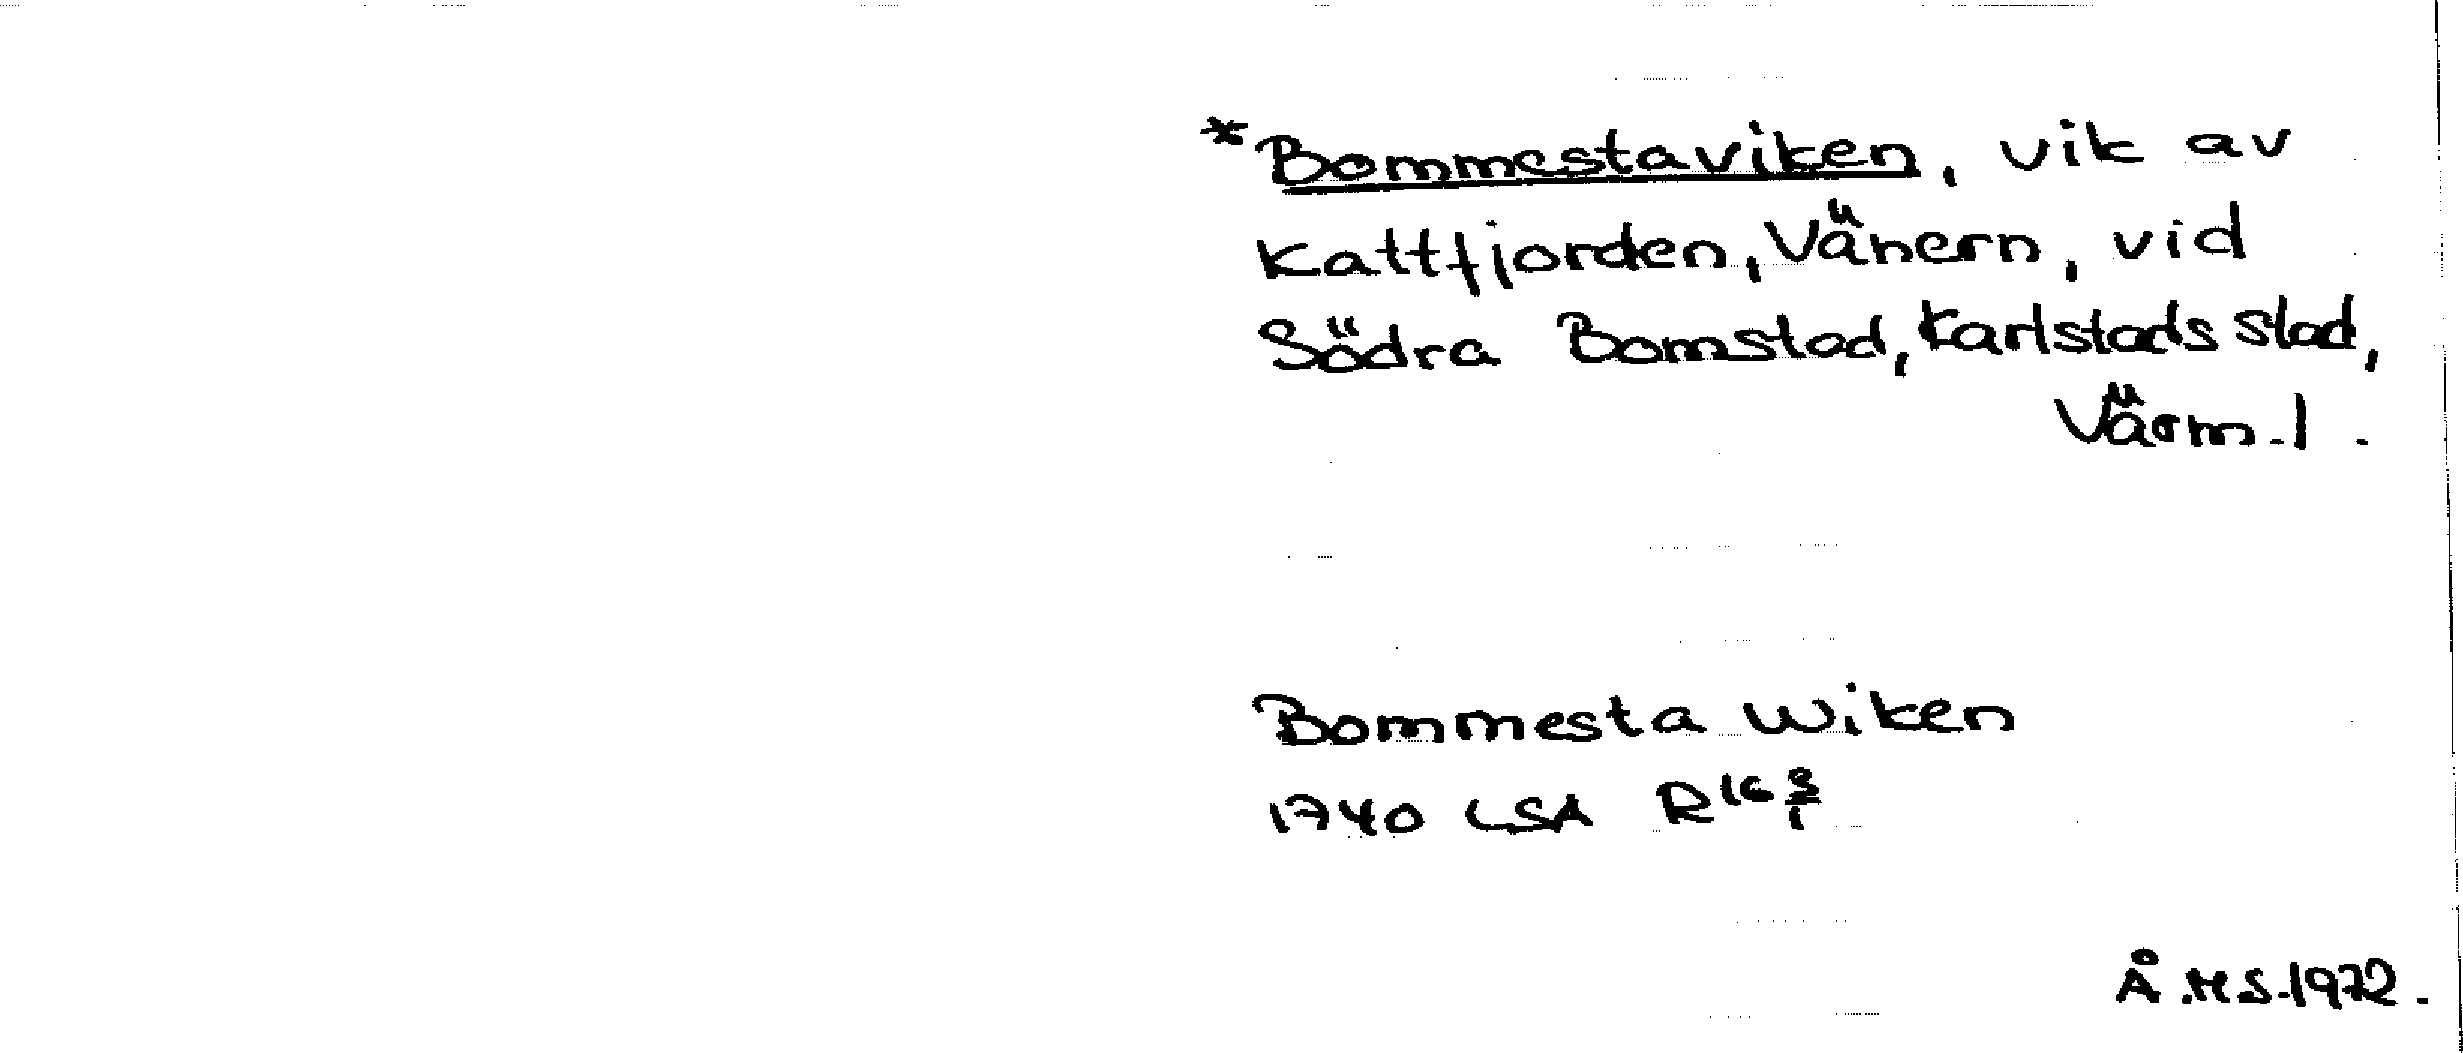 *Bommestaviken, vik av
Kattfjorden, Vänern, vid
Södra Bomstad, Karlstads stad,
Värm. l.
Bommesta Wiken
1740 LSA R16 3/1
Å.H.S. 1972.